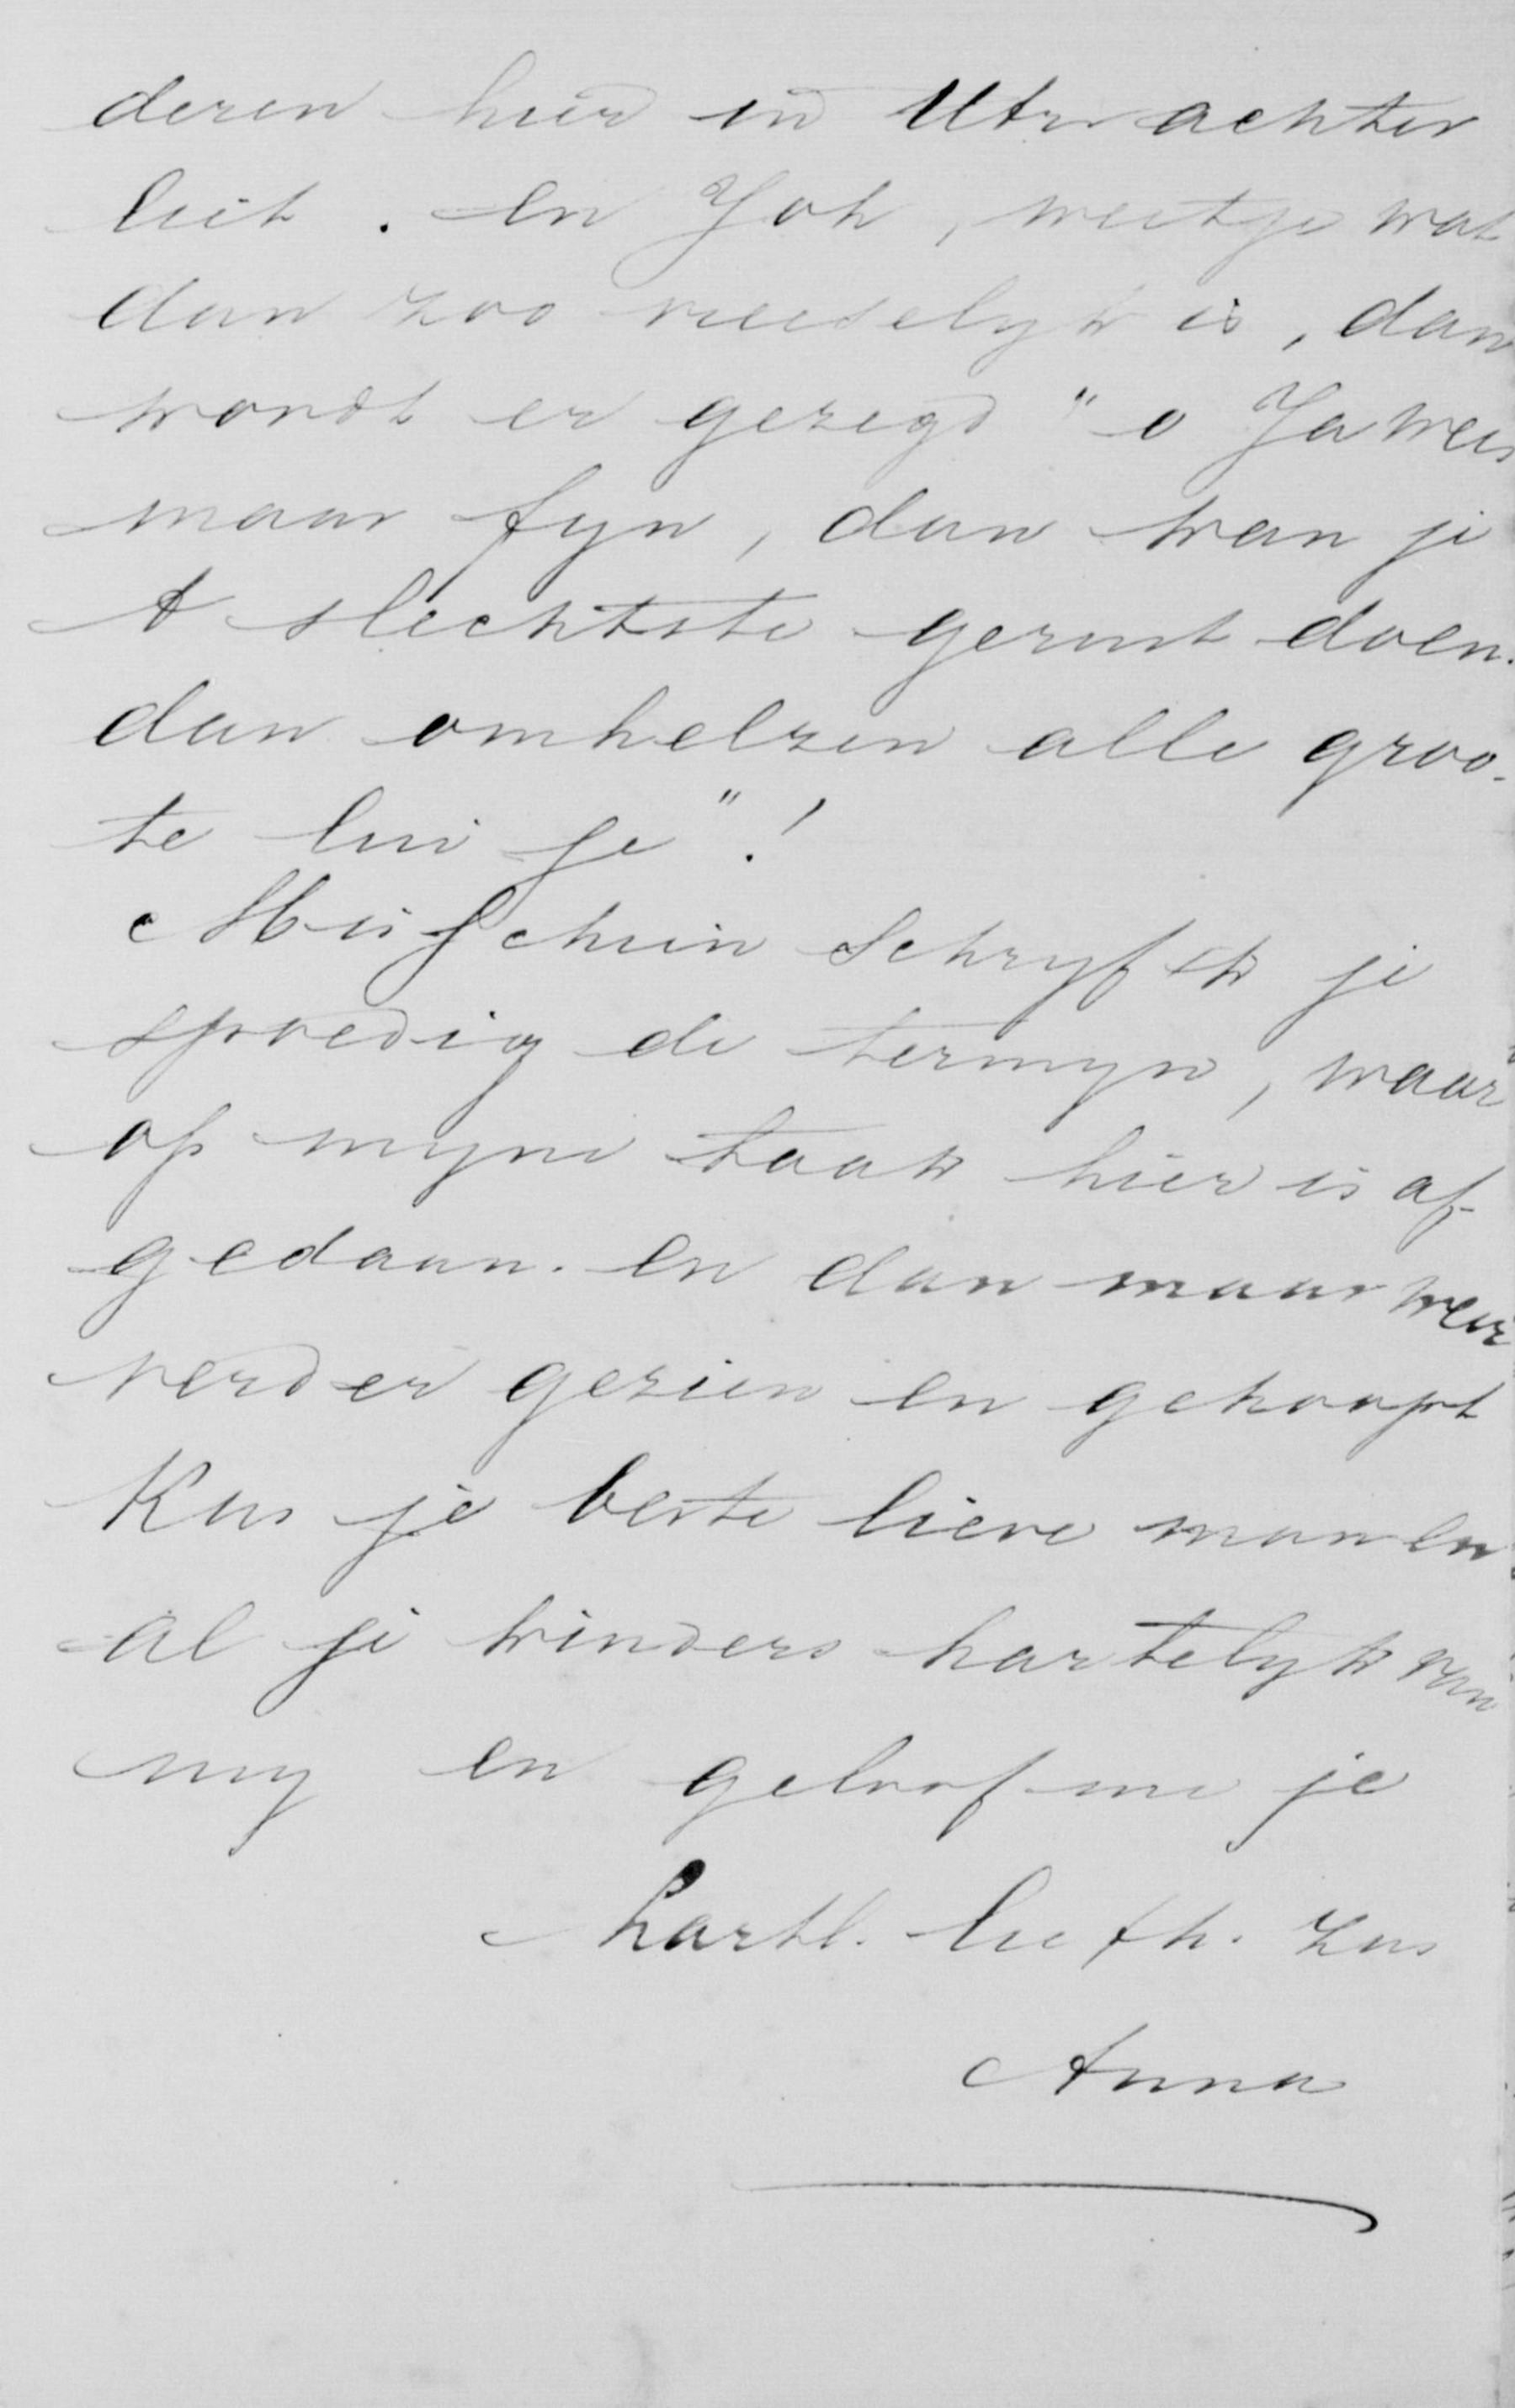 deren hier in Utr achter
liet. En Joh, weetje wat
dan zoo vreeselyk is, dan
wordt er gezegd "o Ja wees
maar fyn, dan kan je
't slechtste gerust doen.
dan omhelzen alle groo-
te lui je"!
Misschien schryf ik je
spoedig de termyn, waar
op myne taak hier is af-
gedaan. en dan maar weer
verder gezien en gehoopt
Kus je beste lieve man en
al je kinders hartelyk van
my en geloof me je
hartl. liefh. zus
Anna